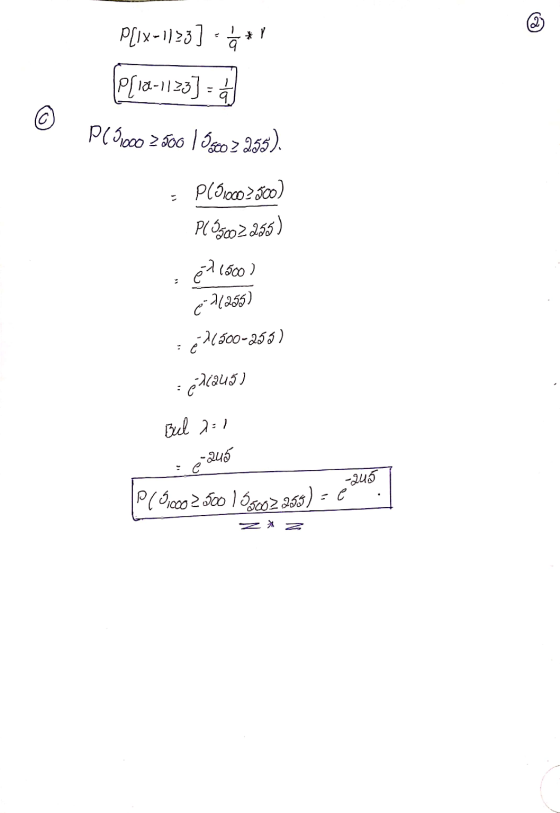 ②
P[|x-1|≥3] = 1/9 * 1
P[|x-1|≥3] = 1/9
Ⓒ
P(S₁₀₀₀ ≥ 500 | S₅₀₀ ≥ 255).
= P(S₁₀₀₀ ≥ 500) / P(S₅₀₀ ≥ 255)
= e^-λ(500) / e^-λ(255)
= e^-λ(500-255)
= e^-λ(245)
But λ = 1
= e^-245
P(S₁₀₀₀ ≥ 500 | S₅₀₀ ≥ 255) = e^-245.